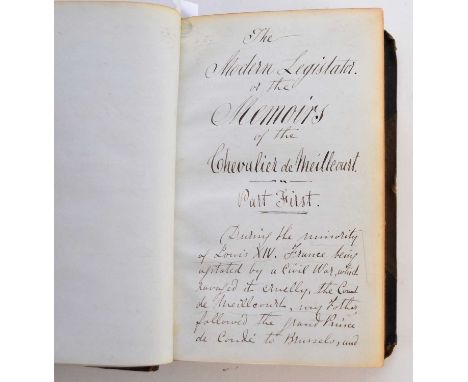 The
Modern Legislator.
or the
Memoirs
of the
Chevalier de Meillcourt.
Part First.
During the minority
of Louis XIV. France being
agitated by a Civil War, which
ravaged it cruelly, the Count
de Meillcourt, my Father
followed the grand Prince
de Condé to Brussels, and